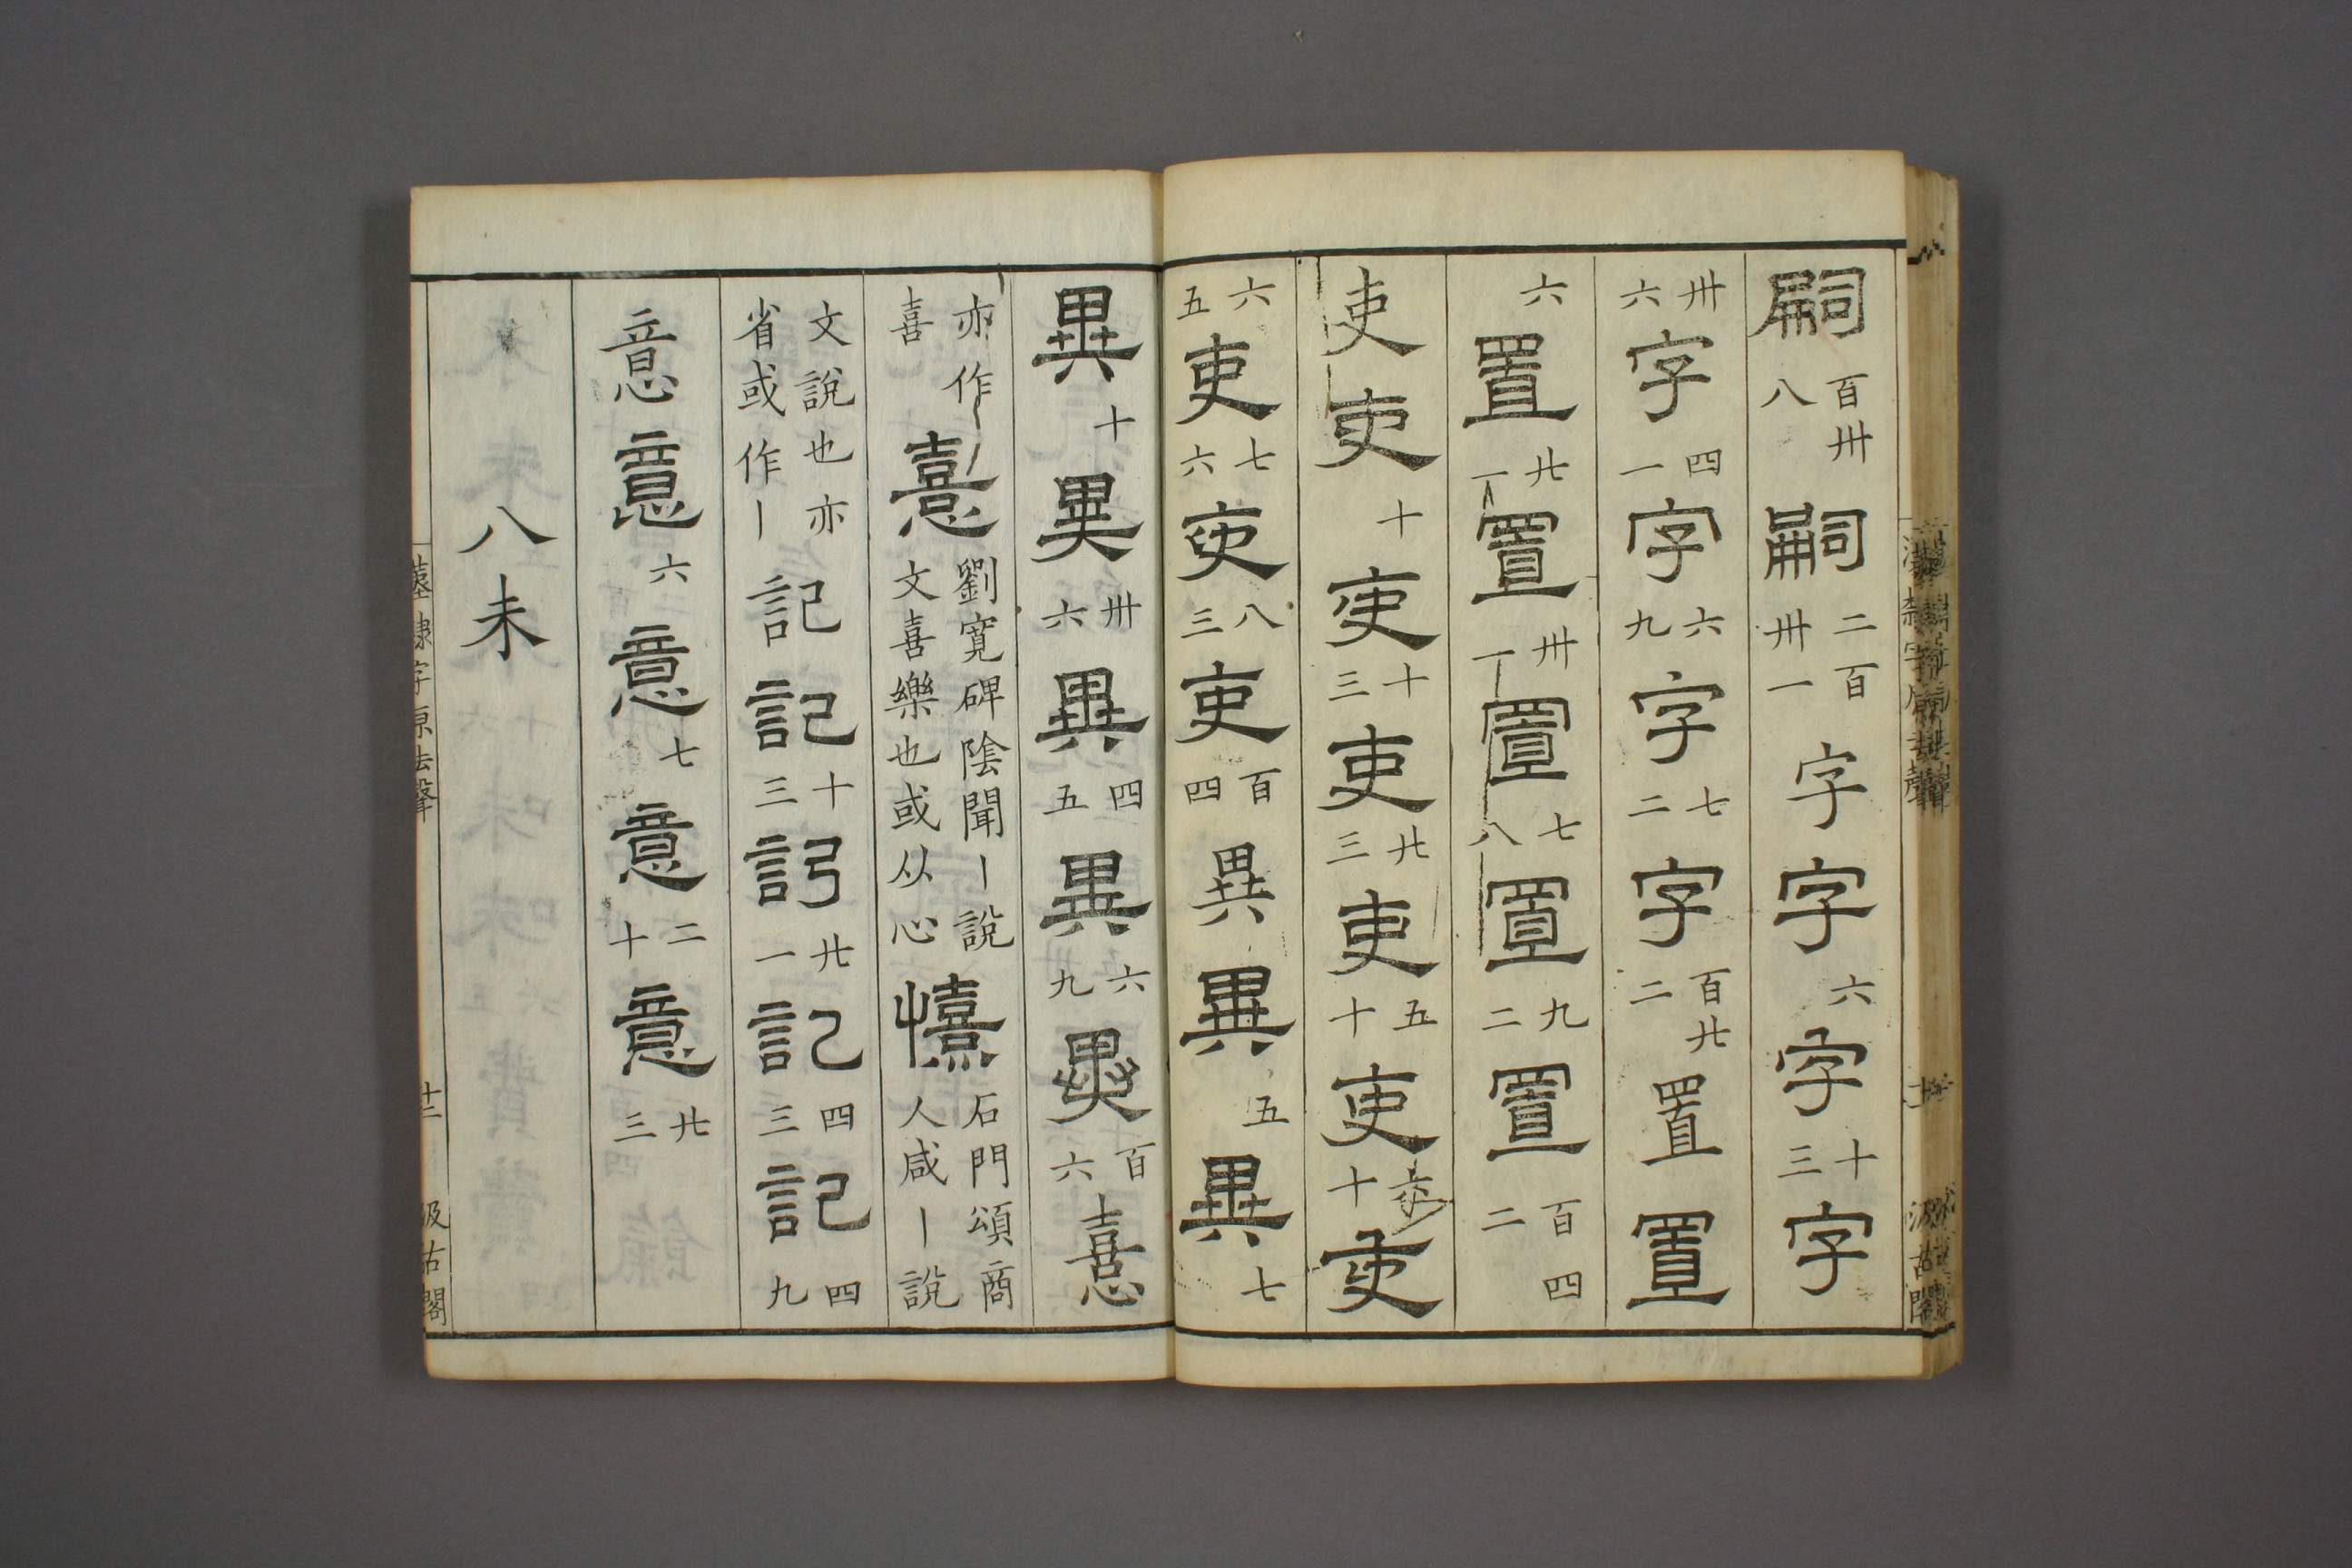 嗣百卌八嗣二百卌一字字六字十三字
卌六字四一字六九字七二字百廿二置置
六置廿一置卌一置七八置九二置百四二
吏吏十吏十三吏廿三吏五十吏六十吏
六五吏七六吏八三吏百四異異五異七
異十異卌六異四五異六九異百六憙
亦作喜憙劉寬碑陰聞丨說文喜樂也或从心憘石門頌商人咸丨說
文說也亦省或作丨記記十三記廿一記四三記四九
意意六意七意二十意廿三
八未
漢隸字原去聲
十二
汲古閣